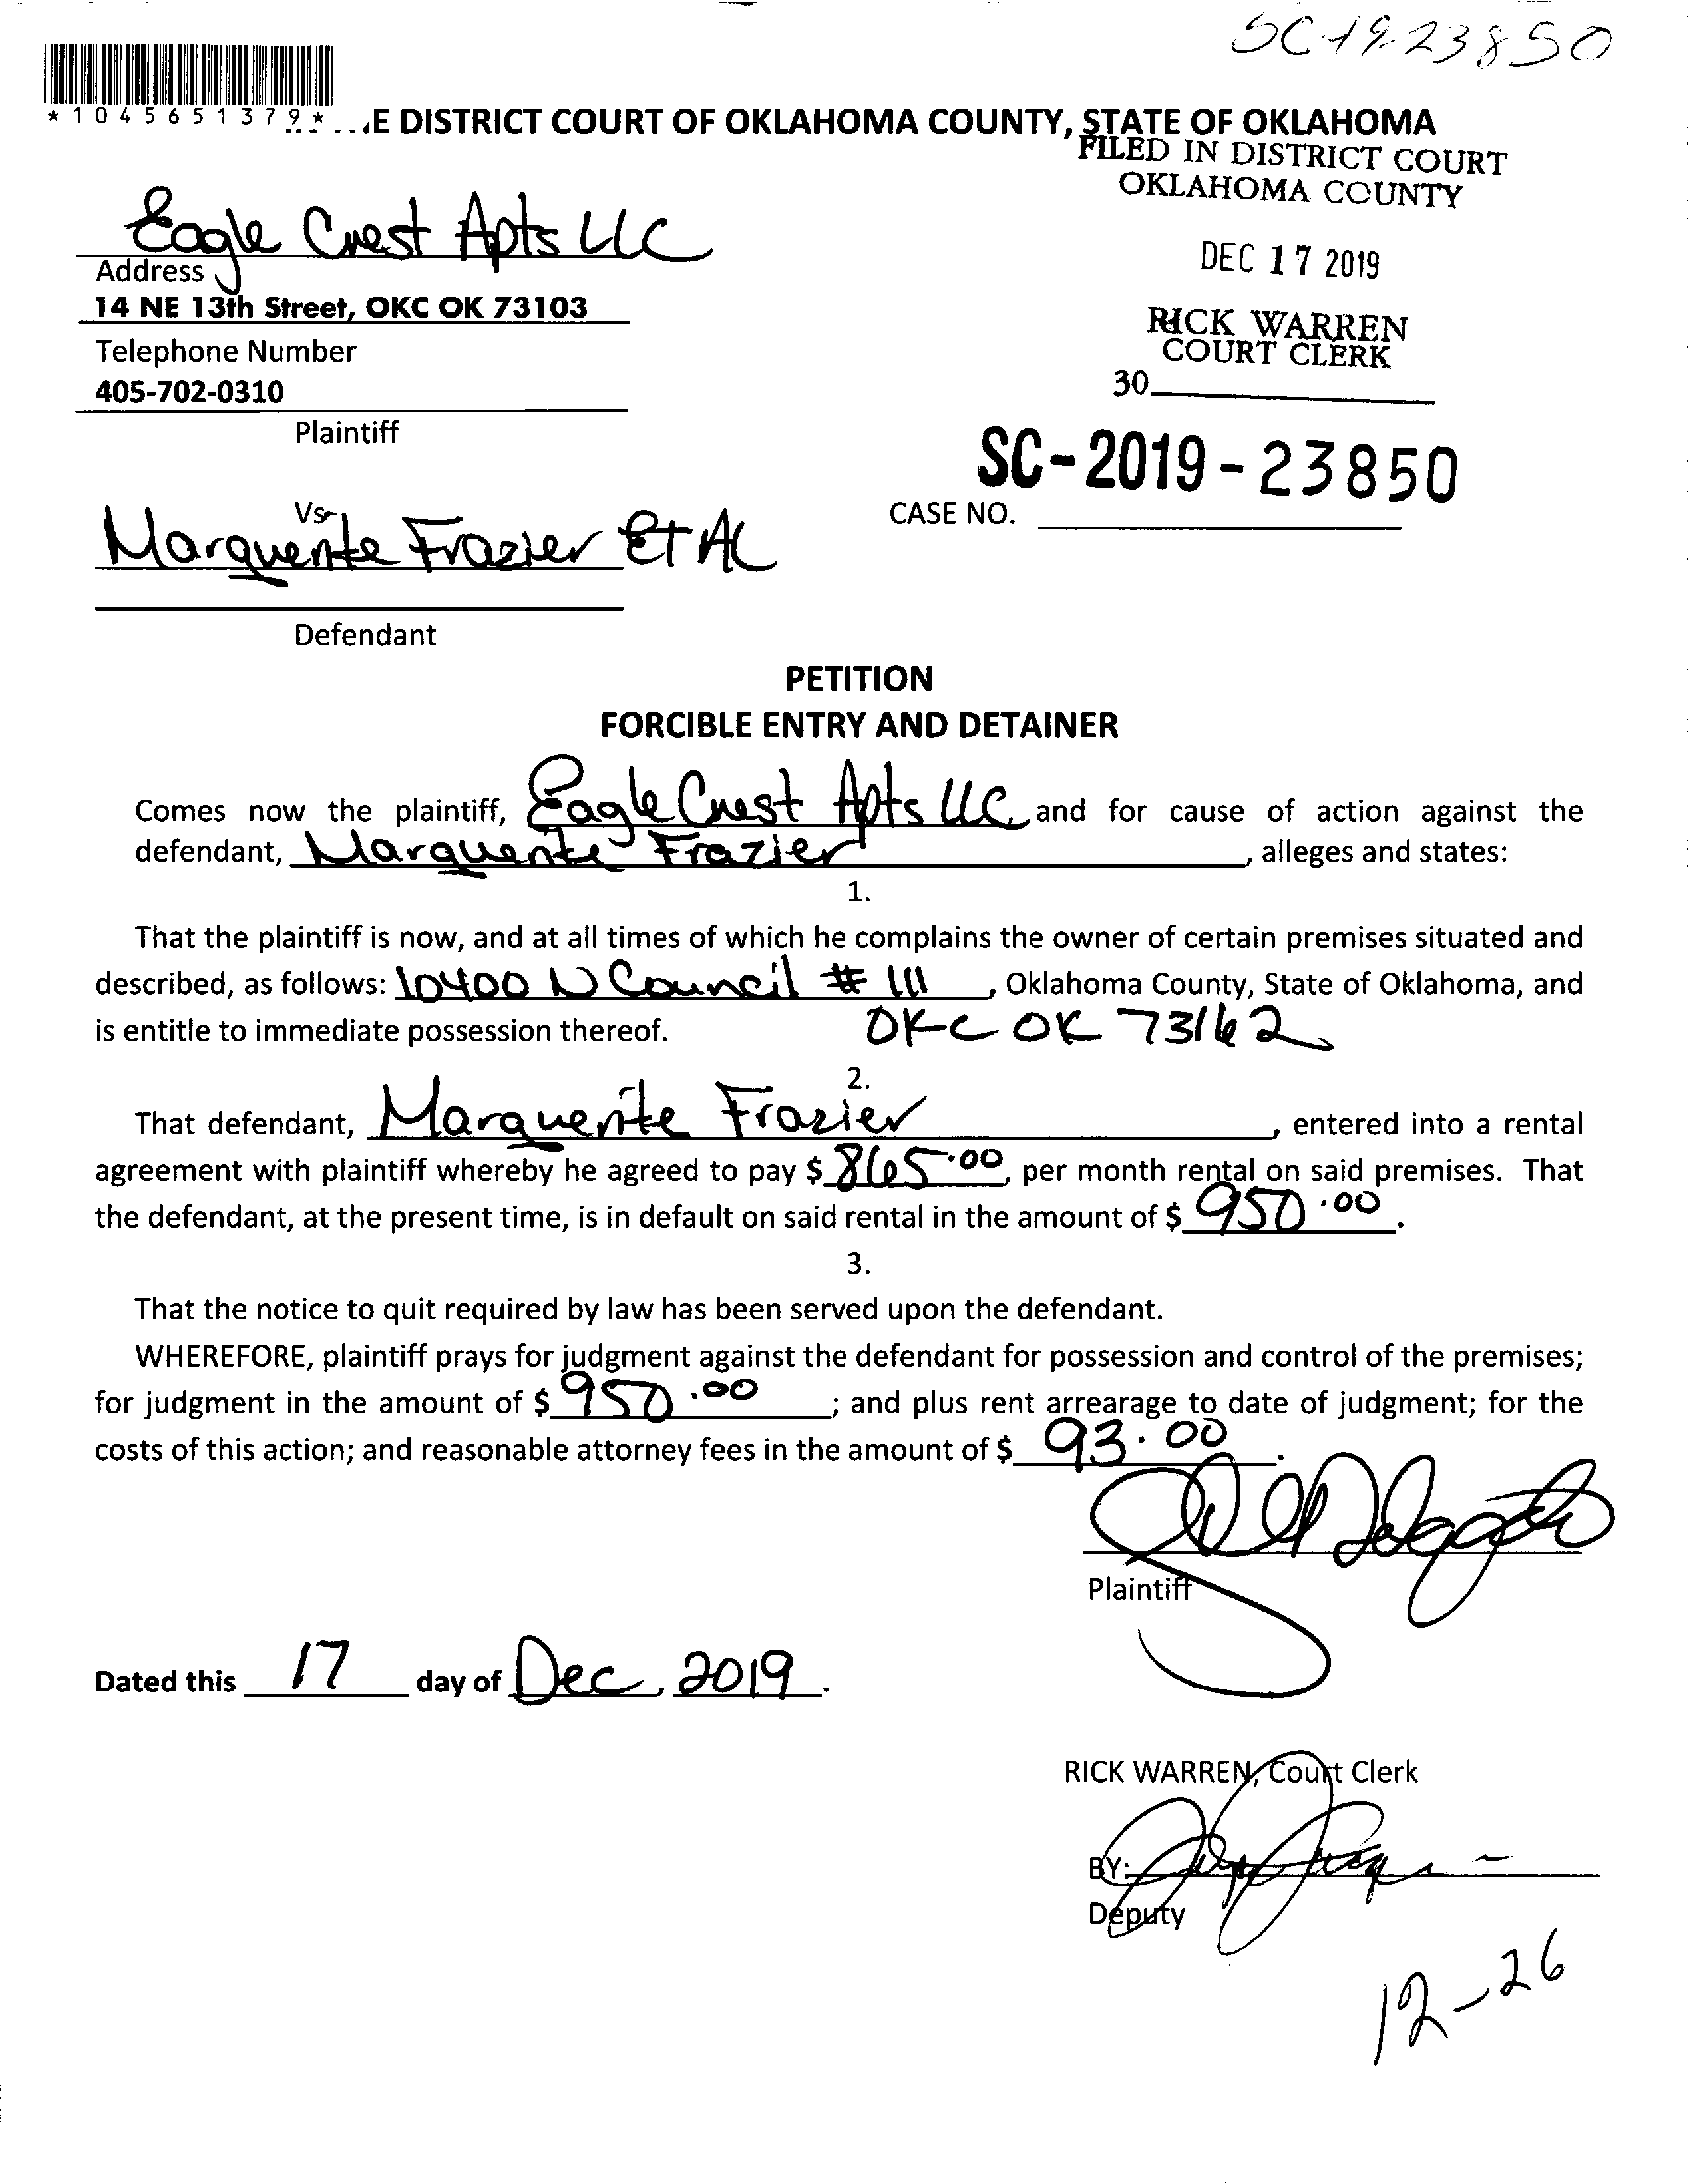 SC-19-23850
*1045651379*
E DISTRICT COURT OF OKLAHOMA COUNTY, STATE OF OKLAHOMA
FILED IN DISTRICT COURT
OKLAHOMA COUNTY
Eagle Crest Apts LLC
Address
DEC 17 2019
14 NE 13th Street, OKC OK 73103
RICK WARREN
COURT CLERK
Telephone Number
30
405-702-0310
Plaintiff
SC-2019-23850
CASE NO.
Vs
Marquerite Frazier Et Al
Defendant
PETITION
FORCIBLE ENTRY AND DETAINER
Comes now the plaintiff, Eagle Crest Apts LLC and for cause of action against the
defendant, Marquerite Frazier, alleges and states:
1.
That the plaintiff is now, and at all times of which he complains the owner of certain premises situated and
described, as follows: 10400 N Council # 111, Oklahoma County, State of Oklahoma, and
is entitle to immediate possession thereof. OKC OK 73162
2.
That defendant, Marquerite Frazier, entered into a rental
agreement with plaintiff whereby he agreed to pay $ 865.00, per month rental on said premises. That
the defendant, at the present time, is in default on said rental in the amount of $ 950.00.
3.
That the notice to quit required by law has been served upon the defendant.
WHEREFORE, plaintiff prays for judgment against the defendant for possession and control of the premises;
for judgment in the amount of $ 950.00; and plus rent arrearage to date of judgment; for the
costs of this action; and reasonable attorney fees in the amount of $ 93.00.
Plaintiff
Dated this 17 day of Dec, 2019.
RICK WARREN, Court Clerk
BY:
Deputy
12-26